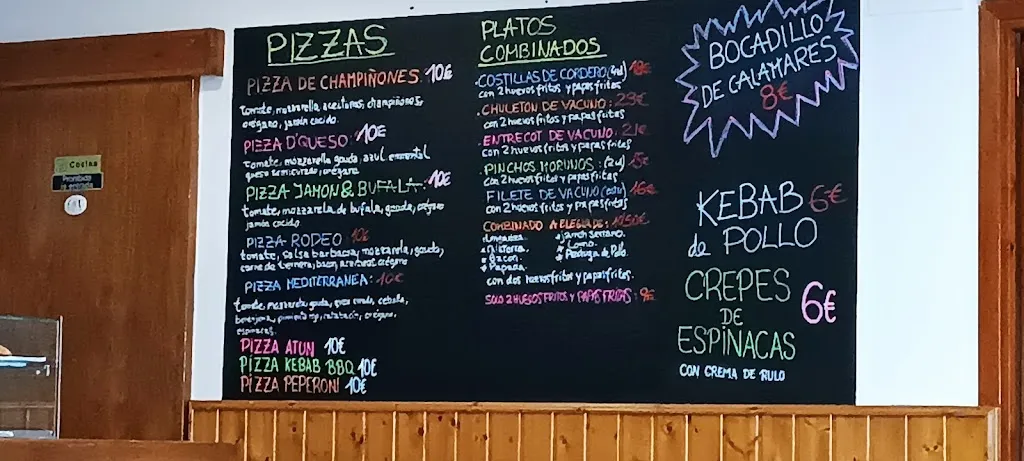 PIZZAS
PIZZA DE CHAMPIÑONES. 10€
Tomate, mozzarella, aceitunas, champiñones
orégano, jamón cocido.
PIZZA D'QUESO: 10€
tomate, mozzarella gouda, azul, emmental
queso semicurado, orégano.
PIZZA JAMON & BUFALA: 10€
tomate, mozzarela de bufala, gouda, orégano
jamón cocido.
PIZZA RODEO 10€
tomate, salsa barbacoa, mozzarela, gouda,
carne de ternera, bacon, orégano
PIZZA MEDITERRANEA: 10€
tomate, mozzarela, gouda, cebolla,
berenjena, orégano,
espinacas.
PIZZA ATUN 10€
PIZZA KEBAB BBQ 10€
PIZZA PEPERONI 10€
PLATOS
COMBINADOS
COSTILLAS DE CORDERO
con 2 huevos fritos y papas fritas
CHULETON DE VACUNO:
con 2 huevos fritos y papas fritas
ENTRECOT DE VACUNO: 21€
con 2 huevos fritos y papas fritas
PINCHOS MORUNOS: (2u) 15€
con 2 huevos fritos y papas fritas
FILETE DE VACUNO 16€
con 2 huevos fritos y papas fritas
COMBINADO A ELEGIR DE: 12,50€
Jamon Serrano.
Lomo.
Bacon
Pechuga de Pollo.
Papada
con dos huevos fritos y papas fritas.
SOLO 2 HUEVOS FRITOS Y PAPAS FRITAS: 9€
BOCADILLO
DE CALAMARES
8€
KEBAB 6€
de POLLO
CREPES
DE 6€
ESPINACAS
CON CREMA DE RULO
Cocina
Prohibida
la entrada